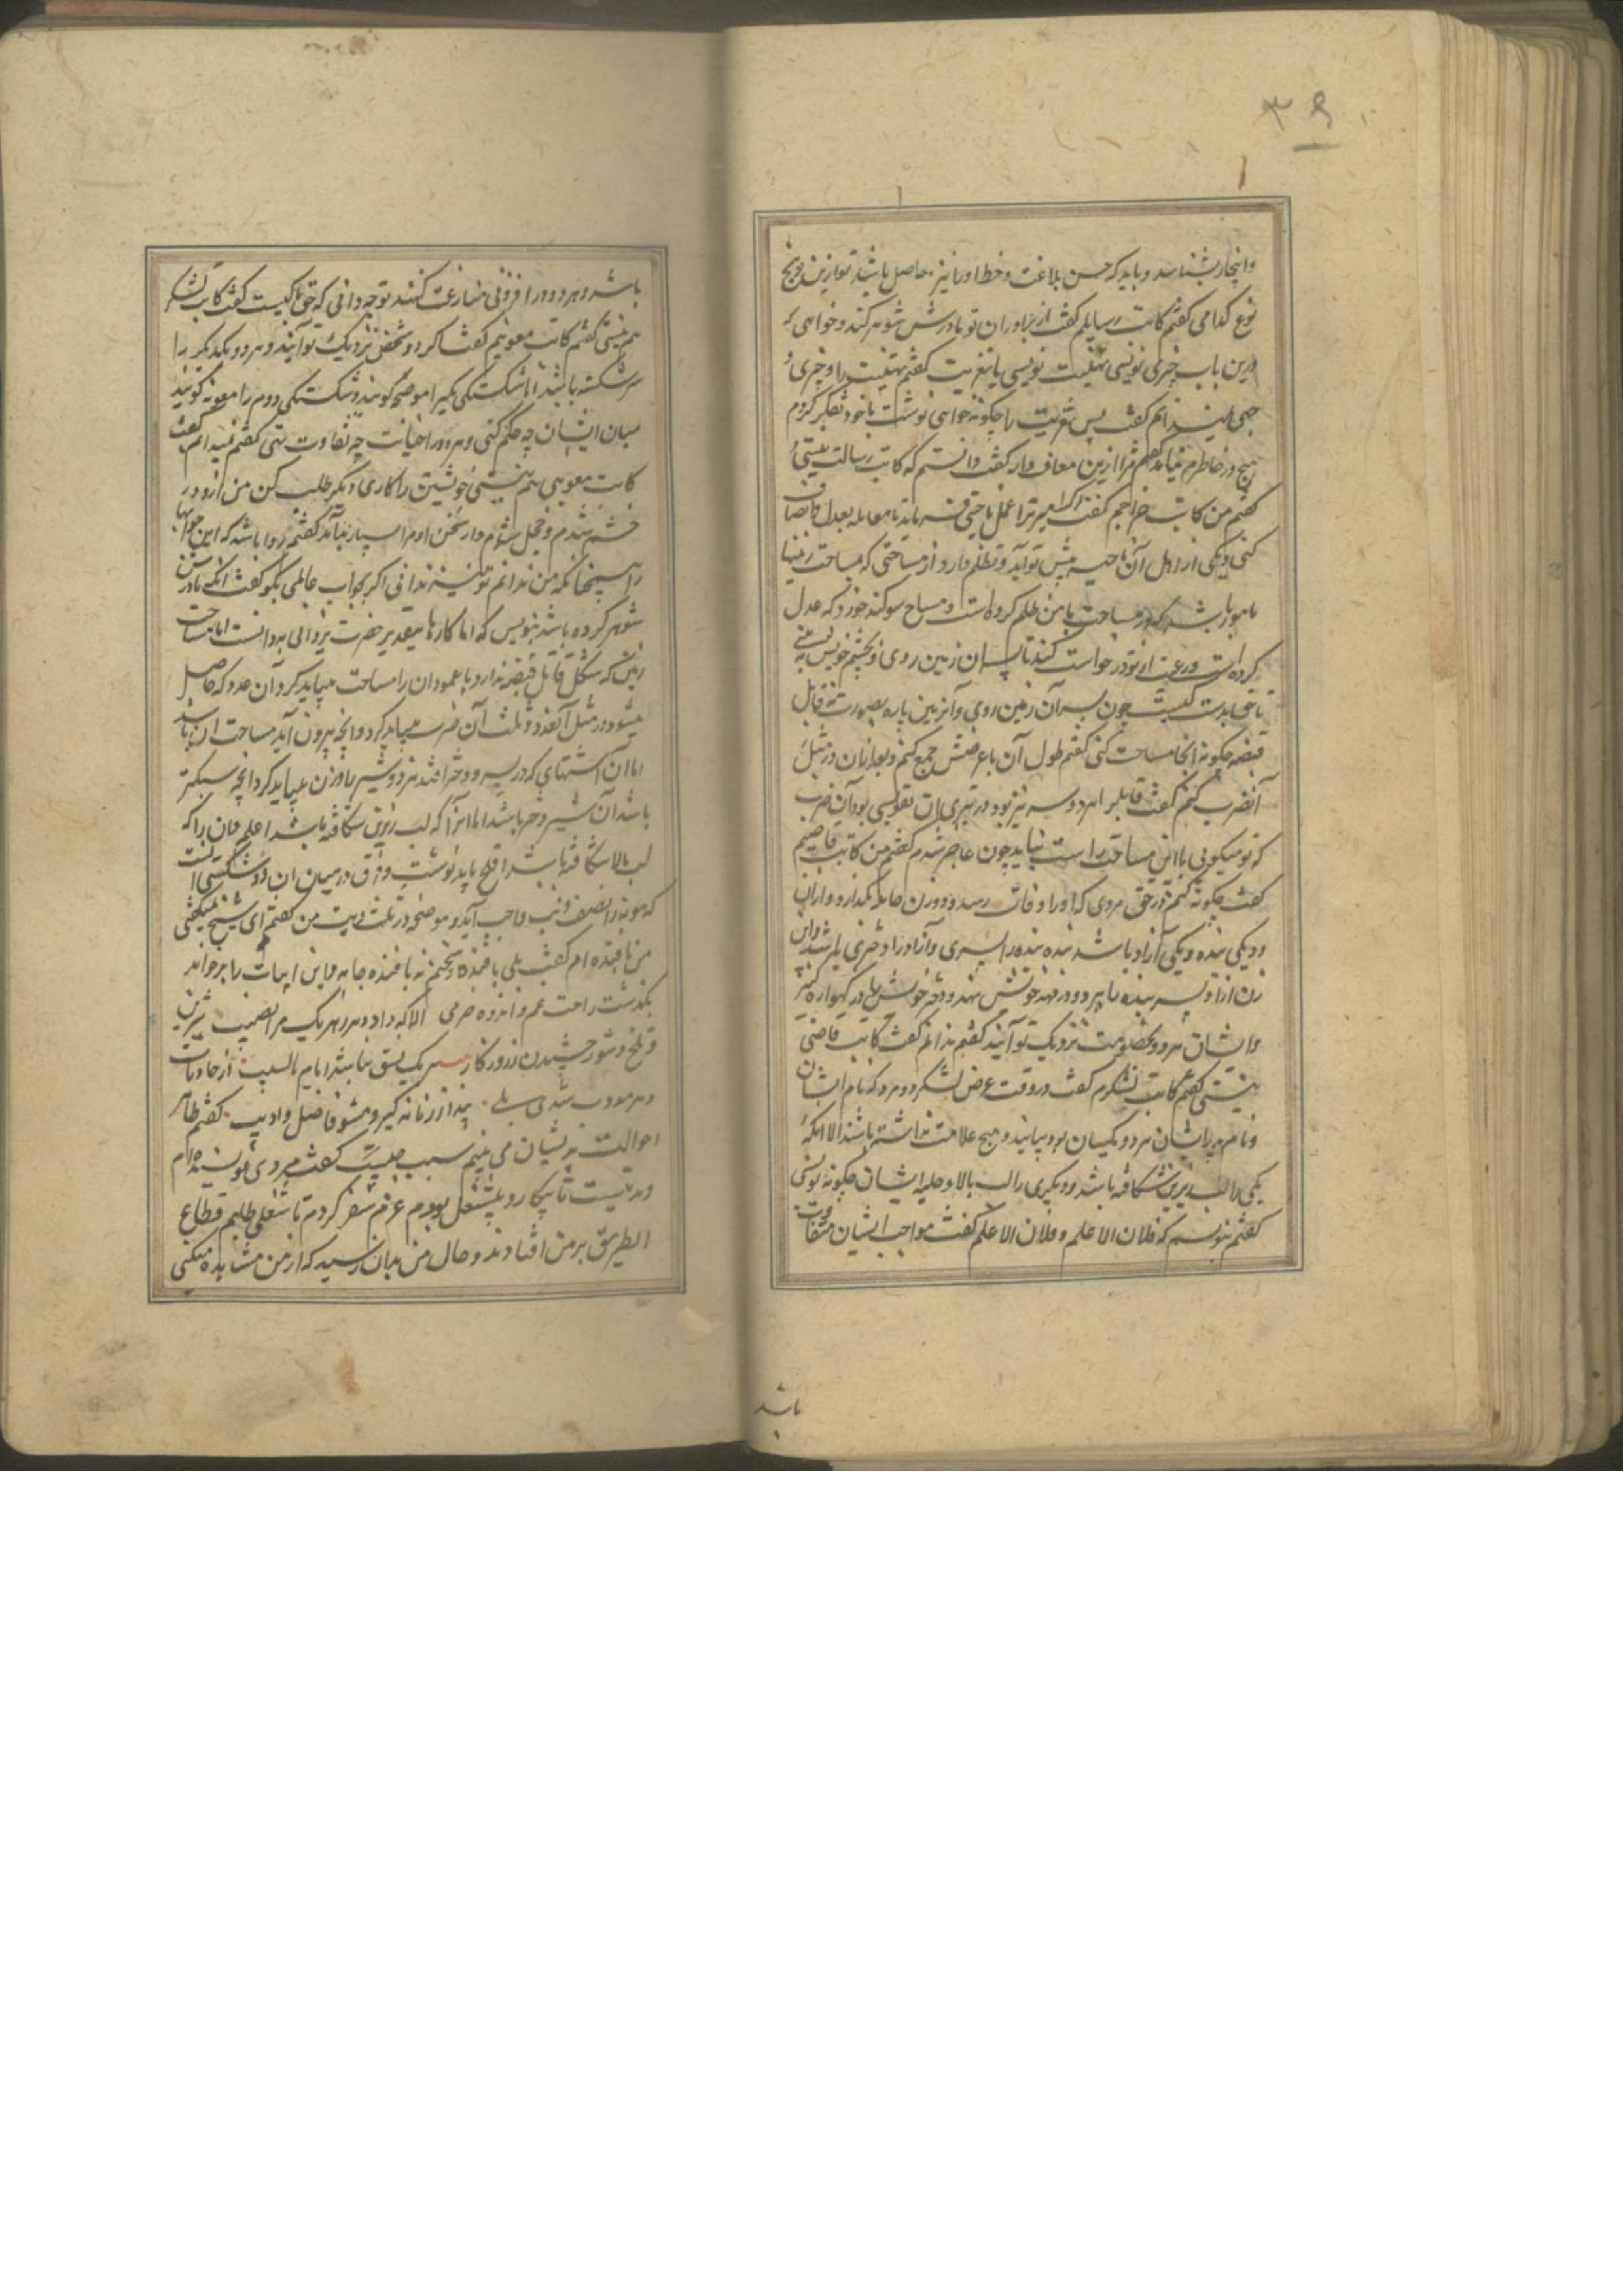 ۳۹
وانجا بشناسد و باید که حسن بلاغت و خط اورا نیز حاصل باشد تو ازین پنج
نوع کدامی کفتم کاتب رسایلم کفت از برادران تو مادرش شوهر کند و خواهی که
درین باب چیزی نویسی تهنیت نویسی یا تعزیت کفتم تهنیت را وجهی
نمیدانم کفت پس تعزیت را چکونه خواهی نوشت با خود تفکر کردم
هیچ در خاطرم نیامد کفتم مرا ازین معاف دار کفت دانستم که کاتب رسالت نیستی
کفتم من کاتب خراجم کفت اکر امیر ترا بعمل ناحیتی فرستد تا معامله بعدل و انصاف
کنی و یکی از اهل آن ناحیه پیش تو آید و تظلم دارد از مساحتی که مساحت زمینها
مامور باشد که در مساحت با من ظلم کرده است و مساح سوکند خورد که عدل
کرده است و رعیت از تو درخواست کند تا بسر آن زمین روی و بچشم خویش به بینی
تا حق بدست کیست چون بسر آن زمین روی و آن زمین پاره بصورت قابل
قبضه چکونه انجا مساحت کنی کفتم طول آن با عرضش جمع کنم و بعد ازان در مثل
آن ضرب کنم کفت قابل را هر دو سر تیز بود و در تیزی آن تقوسی بود آن ضرب
که تو میکویی با این مساحت راست نیاید چون عاجز شدم کفتم من کاتب قاضیم
کفت چکونه کنم در حق مردی که اورا وفات رسد و دو زن حامله بکذارد و از ان
دو یکی بنده و یکی آزاد باشد بنده را پسری و آزاد را دختری باشد و این
زن آزاد پسر بنده را ببرد و در مهد خویش نهد و دختر خویش را در کهواره کنیز
و ایشان هر دو بخصومت نزدیک تو آیند کفتم ندانم کفت کاتب قاضی
نیستی کفتم کاتب لشکرم کفت در وقت عرض لشکر دو مرد که نام ایشان
و نام پدر ایشان هر دو یکسان بود بیایند و هیچ علامت نداشته باشند الا انکه
یکی را لب زیرین شکافته باشد و دیکری را لب بالا و حلیه ایشان چکونه نویسی
کفتم بنویسم که فلان الاعلم و فلان الاعلم کفت مواجب ایشان متفاوت
باشد
باشد و هر دو در افزونی منازعت کنند تو چه دانی که حق با کیست کفت کاتب لشکر
هم نیستی کفتم کاتب معونیم کفت اکر دو شخص نزدیک تو آیند و هر دو یکدیکر را
سر شکسته باشند اما شکستکی یکی را موضحه کویند و شکستکی دوم را مامونه کویند
میان ایشان چه حکم کنی و هر دو را جنایت چه تفاوت نهی کفتم نمیدانم کفت
کاتب معونی هم نیستی خویشتن را کاری دیکر طلب کن من ازو در
خشم شدم و خجل شدم و از سخن او مرا بسیار بد آمد کفتم روا باشد که این جوابها
را همچنانکه من ندانم تو نیز ندانی اکر بجواب عالمی بکو کفت انکه مادرش
شوهر کرده باشد بنویس که اما کارها بتقدیر حضرت یزدانی بوده است اما مساحت
زمین که شکل قابل قبضه دارد با عمود ان را مساحت میباید کرد آن عدد که حاصل
میشود در مثل آن عدد و ثلث آن ضرب میباید کرد و انچه بیرون آید مساحت ان باشد
اما آن اشتباهی که در پسر و دختر افتد هر دو شیر را وزن میباید کرد انچه سبکتر
باشد آن شیر دختر باشد اما انرا که لب زیرین شکافته باشد اعلم و ان را که
لب بالا شکافته باشد افلح باید نوشت و فرق در میان ان دو شکستکی انست
که مامونه را نصف دیت واجب آید و موضحه در ثلث دیت من کفتم ای شیخ میکفتی
من بافنده ام کفت بلی بافنده سخنم نه بافنده جامه و این ابیات را بر خواند
بکذشت راحت غم و اندوه خرمی الا که داد دهر زهر یک مرا نصیب شیرین
و تلخ و شور چشیدن ز روزکار بر یک نسق نباشد ایام با لبیب از حادثات
دهر مودب شدی بلی پند از زمانه کیر و مشو فاضل و ادیب کفتم ظاهر
احوالت پریشان می بینم سبب چیست کفت مردی نویسنده ام
و مدتیست تا بیکار و بیشغل بودم عزم سفر کردم تا شغلی طلبم قطاع
الطریق بر من افتادند و حال من بدان رسید که از من مشاهده میکنی